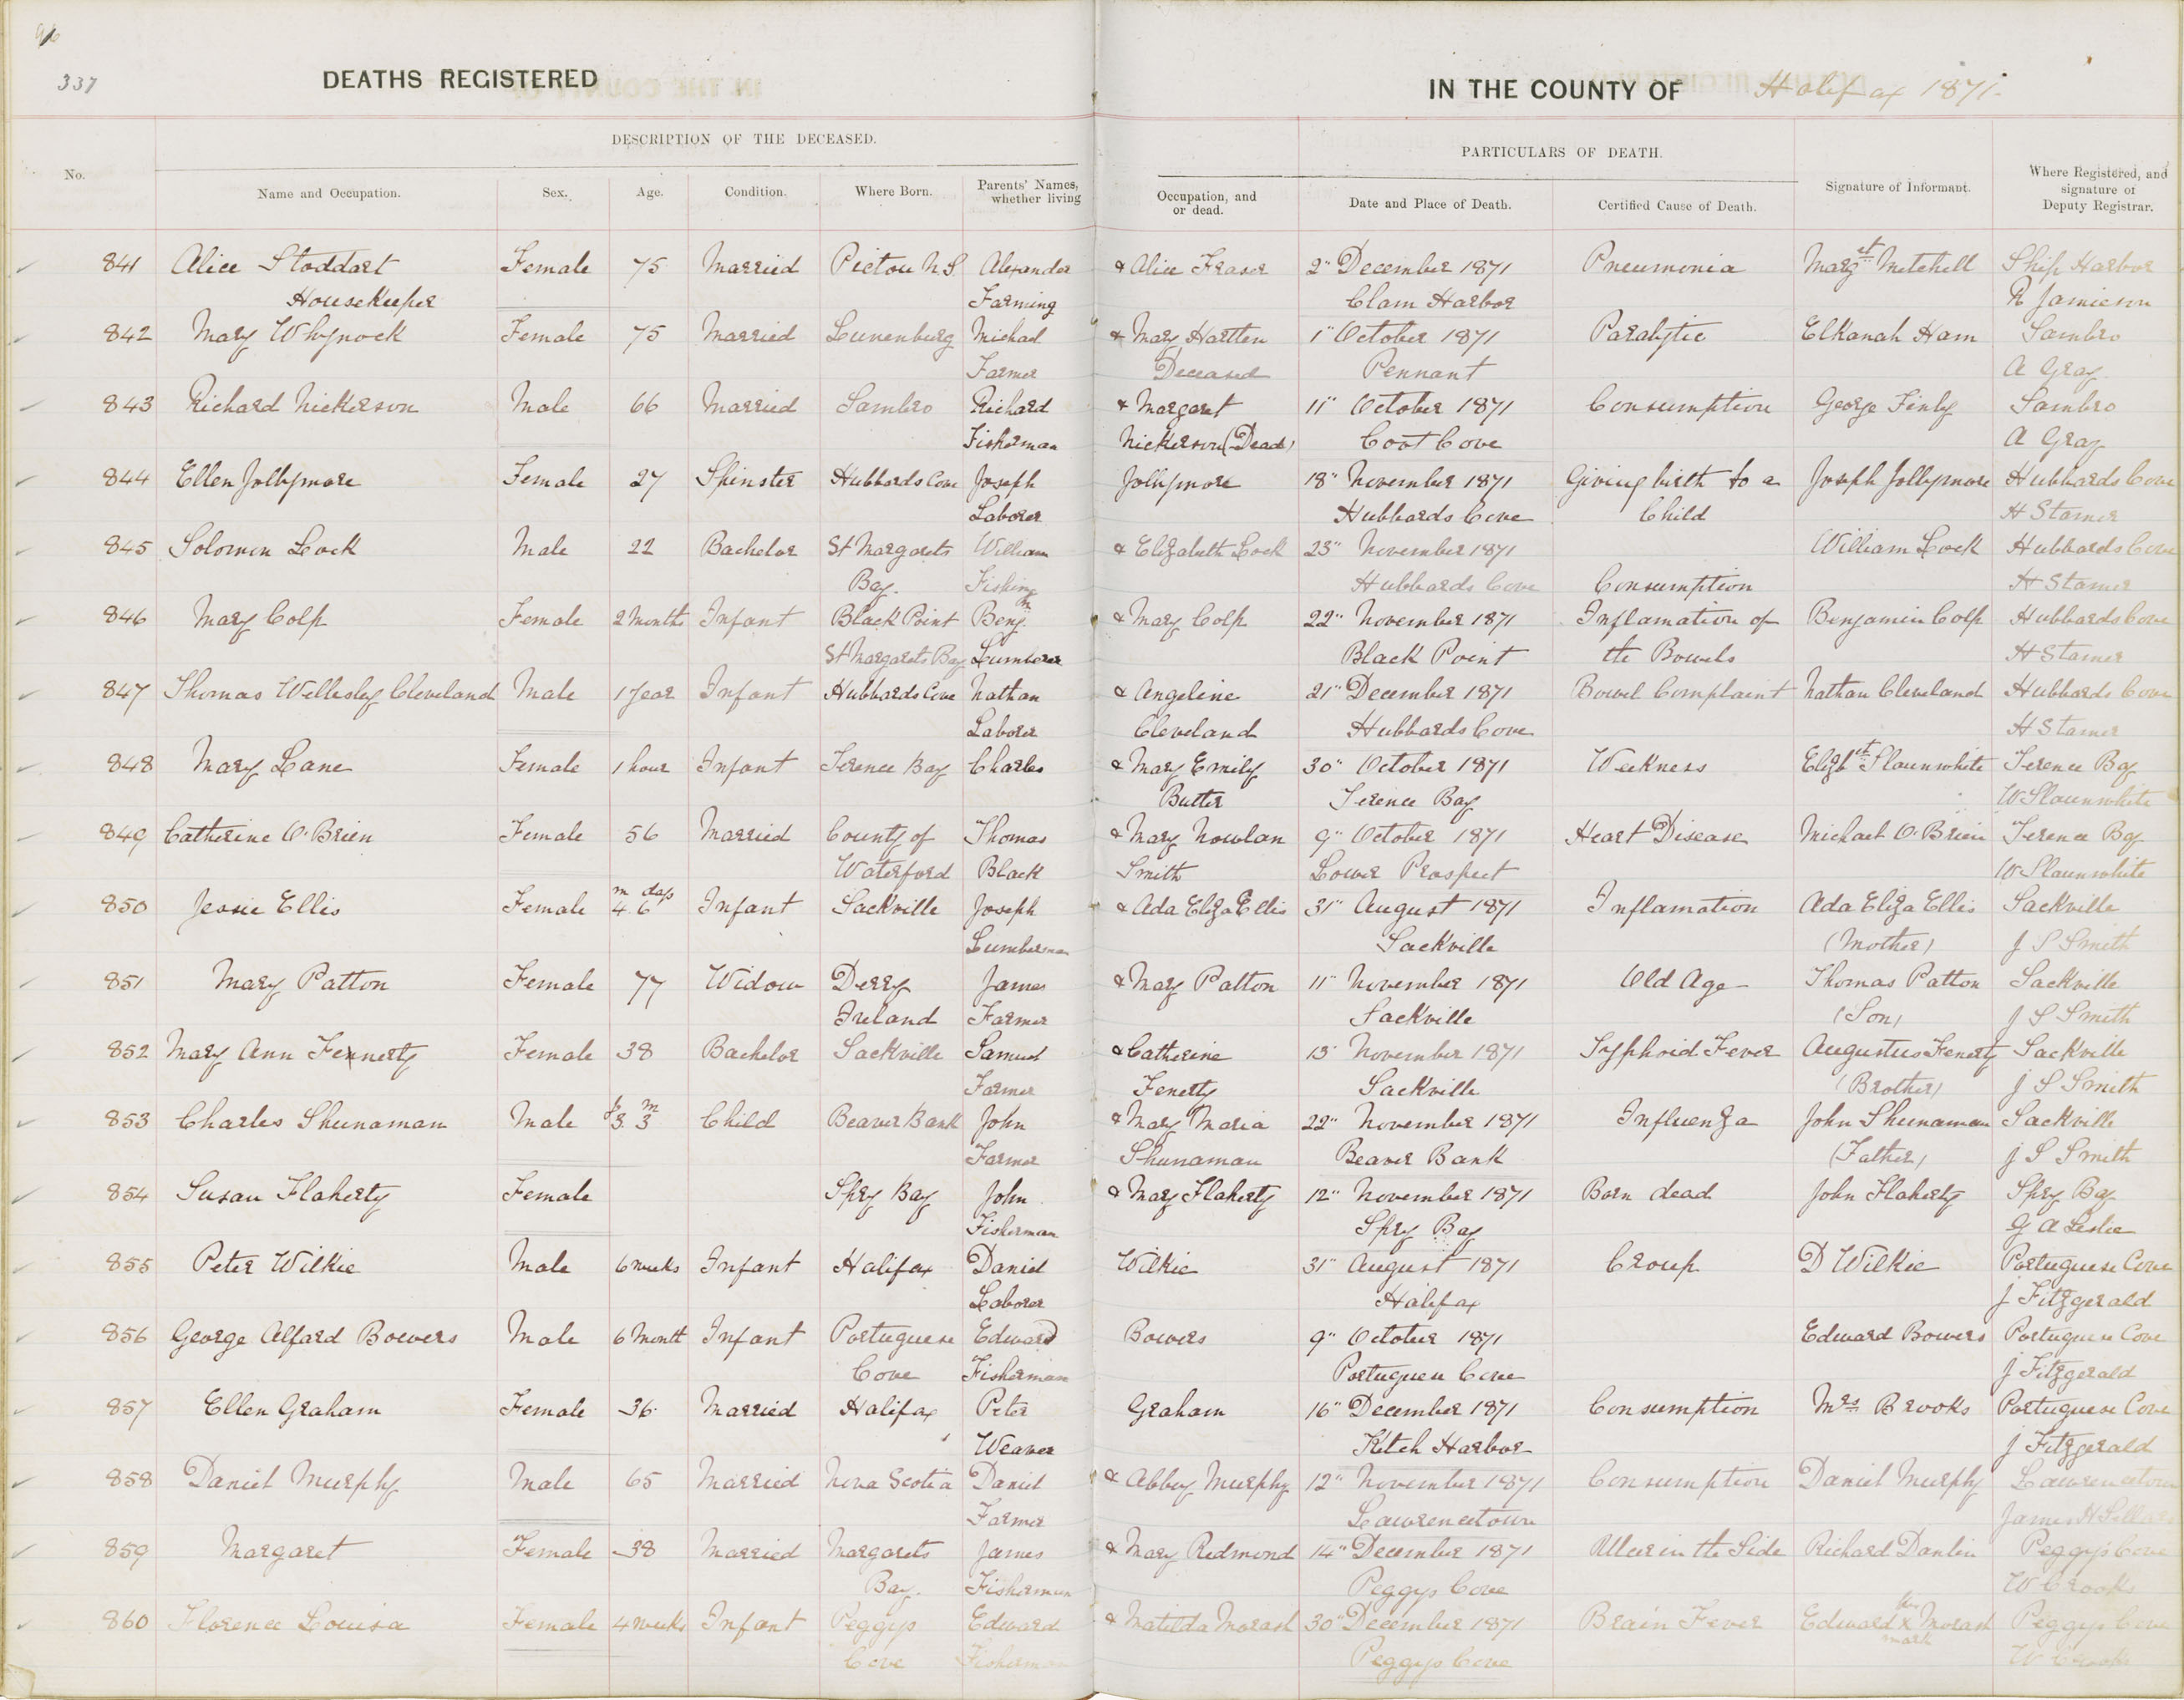 96
337
DEATHS REGISTERED IN THE COUNTY OF Halifax 1871.
DESCRIPTION OF THE DECEASED. PARTICULARS OF DEATH.
No. Name and Occupation. Sex. Age. Condition. Where Born. Parents' Names, whether living Occupation, and or dead. Date and Place of Death. Certified Cause of Death. Signature of Informant. Where Registered, and signature of Deputy Registrar.
841 Alice Stoddart Female 75 Married Pictou N S Alexander & Alice Fraser 2" December 1871 Pneumonia Margt Mitchell Ship Harbor
Housekeeper Farming Clam Harbor R Jamieson
842 Mary Whynock Female 75 Married Lunenburg Michael & Mary Hartten 1" October 1871 Paralytic Elkanah Ham Sambro
Farmer Deceased Pennant A Gray
843 Richard Nickerson Male 66 Married Sambro Richard & Margaret 11" October 1871 Consumption George Finly Sambro
Fisherman Nickerson (Dead) Coot Cove A Gray
844 Ellen Jollymore Female 27 Spinster Hubbards Cove Joseph Jollymore 18" November 1871 Giving birth to a Joseph Jollymore Hubbards Cove
Laborer Hubbards Cove Child H Stamer
845 Solomon Lock Male 22 Bachelor St Margarets William & Elizabeth Lock 23" November 1871 William Lock Hubbards Cove
Bay. Fishing Hubbards Cove Consumption H Stamer
846 Mary Colp Female 2 Months Infant Black Point Benjn & Mary Colp 22" November 1871 Inflamation of Benjamin Colp Hubbards Cove
St Margarets Bay Lumberer Black Point the Bowels H Stamer
847 Thomas Wellesley Cleveland Male 1 Year Infant Hubbards Cove Nathan & Angeline 21" December 1871 Bowel Complaint Nathan Cleveland Hubbards Cove
Laborer Cleveland Hubbards Cove H Stamer
848 Mary Lane Female 1 hour Infant Terence Bay Charles & Mary Emily 30" October 1871 Weekness Elizbth Slaunwhite Terence Bay
Butler Terence Bay W Slaunwhite
849 Catherine O'Brien Female 56 Married County of Thomas & Mary Nowlan 9" October 1871 Heart Disease Michael O'Brien Terence Bay
Waterford Black Smith Lower Prospect W Slaunwhite
850 Jessie Ellis Female m days 4. 6 Infant Sackville Joseph & Ada Eliza Ellis 31" August 1871 Inflamation Ada Eliza Ellis Sackville
Lumberman Sackville (Mother) J S Smith
851 Mary Patton Female 77 Widow Derry James & Mary Patton 11" November 1871 Old Age Thomas Patton Sackville
Ireland Farmer Sackville (Son) J S Smith
852 Mary Ann Fennerty Female 38 Bachelor Sackville Samuel & Catherine 13" November 1871 Typhoid Fever Augustus Fenerty Sackville
Farmer Fenerty Sackville (Brother) J S Smith
853 Charles Shunaman Male y m 3. 3 Child Beaver Bank John & Mary Maria 22" November 1871 Influenza John Shunaman Sackville
Farmer Shunaman Beaver Bank (Father) J S Smith
854 Susan Flaherty Female Spry Bay John & Mary Flaherty 12" November 1871 Born dead John Flaherty Spry Bay
Fisherman Spry Bay G A Leslie
855 Peter Wilkie Male 6 weeks Infant Halifax Daniel Wilkie 31" August 1871 Croup D Wilkie Portuguese Cove
Laborer Halifax J Fitzgerald
856 George Alfard Bowers Male 6 Month Infant Portuguese Edward Bowers 9" October 1871 Edward Bowers Portuguese Cove
Cove Fisherman Portuguese Cove J Fitzgerald
857 Ellen Graham Female 36 Married Halifax Peter Graham 16" December 1871 Consumption Mrs Brooks Portuguese Cove
Weaver Ketch Harbor J Fitzgerald
858 Daniel Murphy Male 65 Married Nova Scotia Daniel & Abbey Murphy 12" November 1871 Consumption Daniel Murphy Lawrencetown
Farmer Lawrencetown James H
859 Margaret Female 38 Married Margarets James & Mary Redmond 14" December 1871 Ulcer in the Side Richard Peggys Cove
Bay. Fisherman Peggys Cove W Crooks
860 Florence Louisa Female 4 weeks Infant Peggys Edward & Matilda Morash 30" December 1871 Brain Fever Edward his x mark Morash Peggys Cove
Cove Fisherman Peggys Cove W Crooks